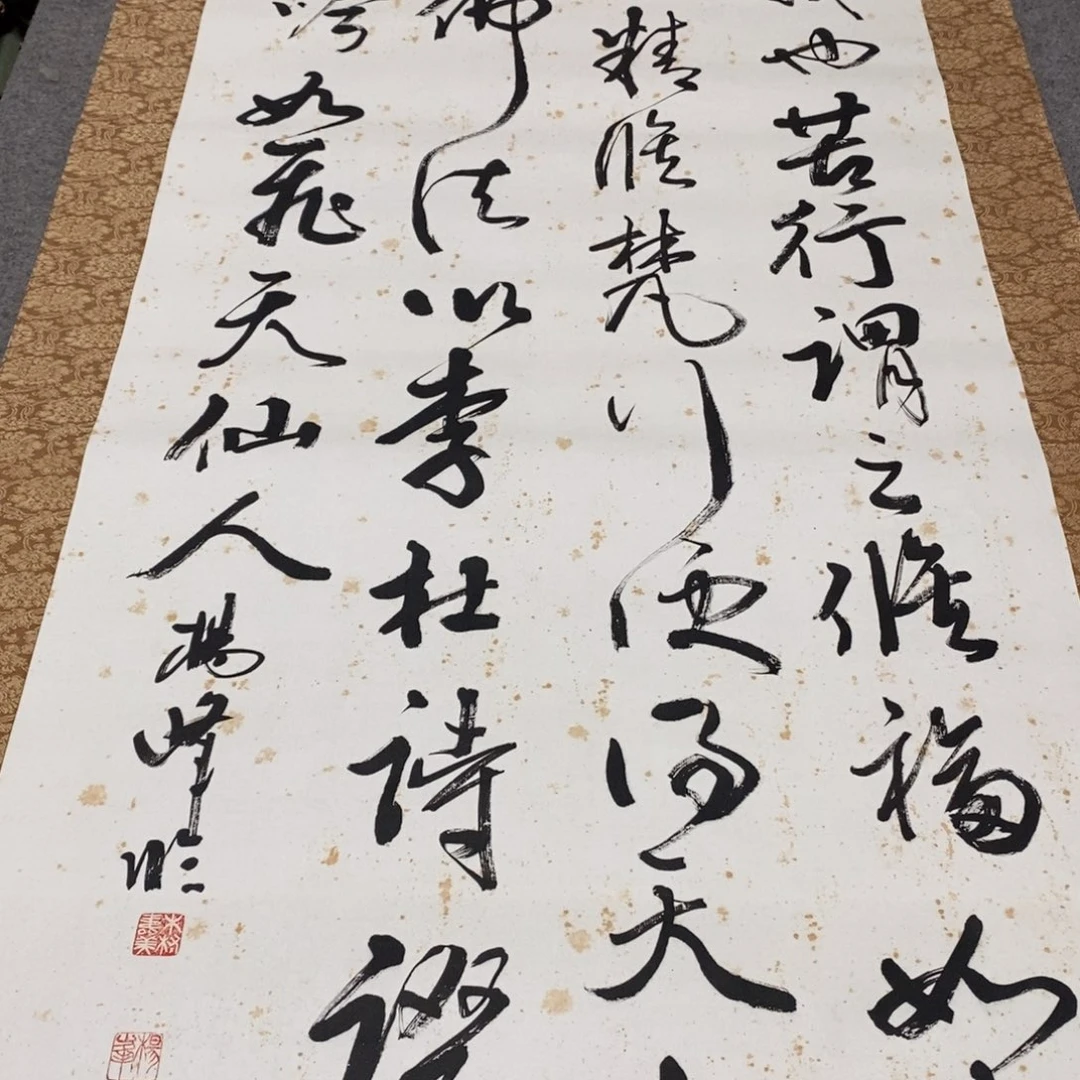 也苦行謂之修福如
精脩梵行便得大
佛法以李杜詩
吟如飛天仙人 楊峰临